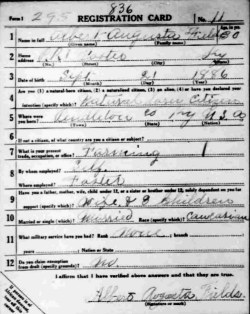 836
Form 1 295 REGISTRATION CARD No. 11
1 Name in full Albert Augusta Fields Age, in yrs. 30
(Given name) (Family name)
2 Home address
(No.) (Street) (City) (State)
3 Date of birth Sept. 21 1886
(Month) (Day) (Year)
4 Are you (1) a natural-born citizen, (2) a naturalized citizen, (3) an alien, (4) or have you declared your
intention (specify which)? Natural born Citizen
5 Where were you born? Pendleton Co Ky U.S.A
(Town) (State) (Nation)
6 If not a citizen, of what country are you a citizen or subject?
7 What is your present trade, occupation, or office? Farming 1
8 By whom employed?
Where employed?
9 Have you a father, mother, wife, child under 12, or a sister or brother under 12, solely dependent on you for
support (specify which)? Wife & Children
10 Married or single (which)? Married Race (specify which)? Caucasian
11 What military service have you had? Rank None ; branch
years ; Nation or State
12 Do you claim exemption from draft (specify grounds)? No.
I affirm that I have verified above answers and that they are true.
Albert Augusta Fields
(Signature or mark)